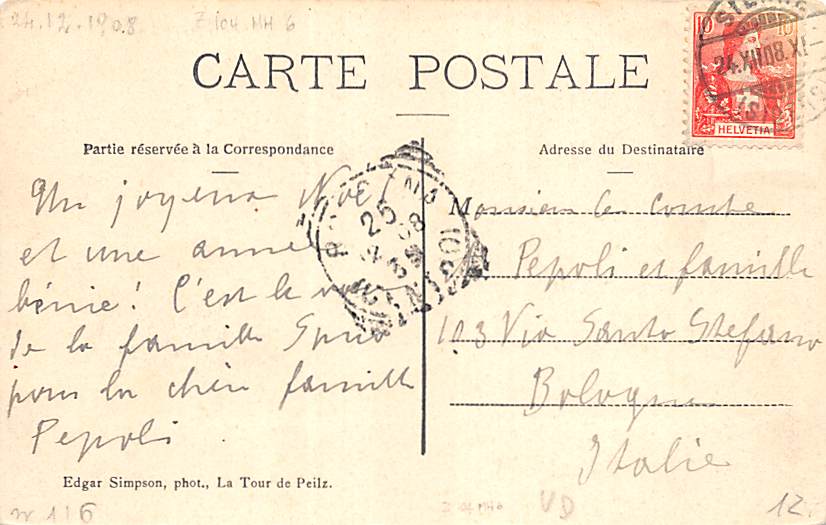 24.12.1908
Z 104 MH 6
10 10
HELVETIA
24.XII 08.IX
CARTE POSTALE
Partie réservée à la Correspondance
Adresse du Destinataire
Un joyeux Noël
et une année
bénie! C'est le
de la famille
pour la chère famille
Pepoli
BOLOGNA
25
12 08
Monsieur le comte
Pepoli et famille
103 Via Santo Stefano
Bologna
Italie
Edgar Simpson, phot., La Tour de Peilz.
VD
12.